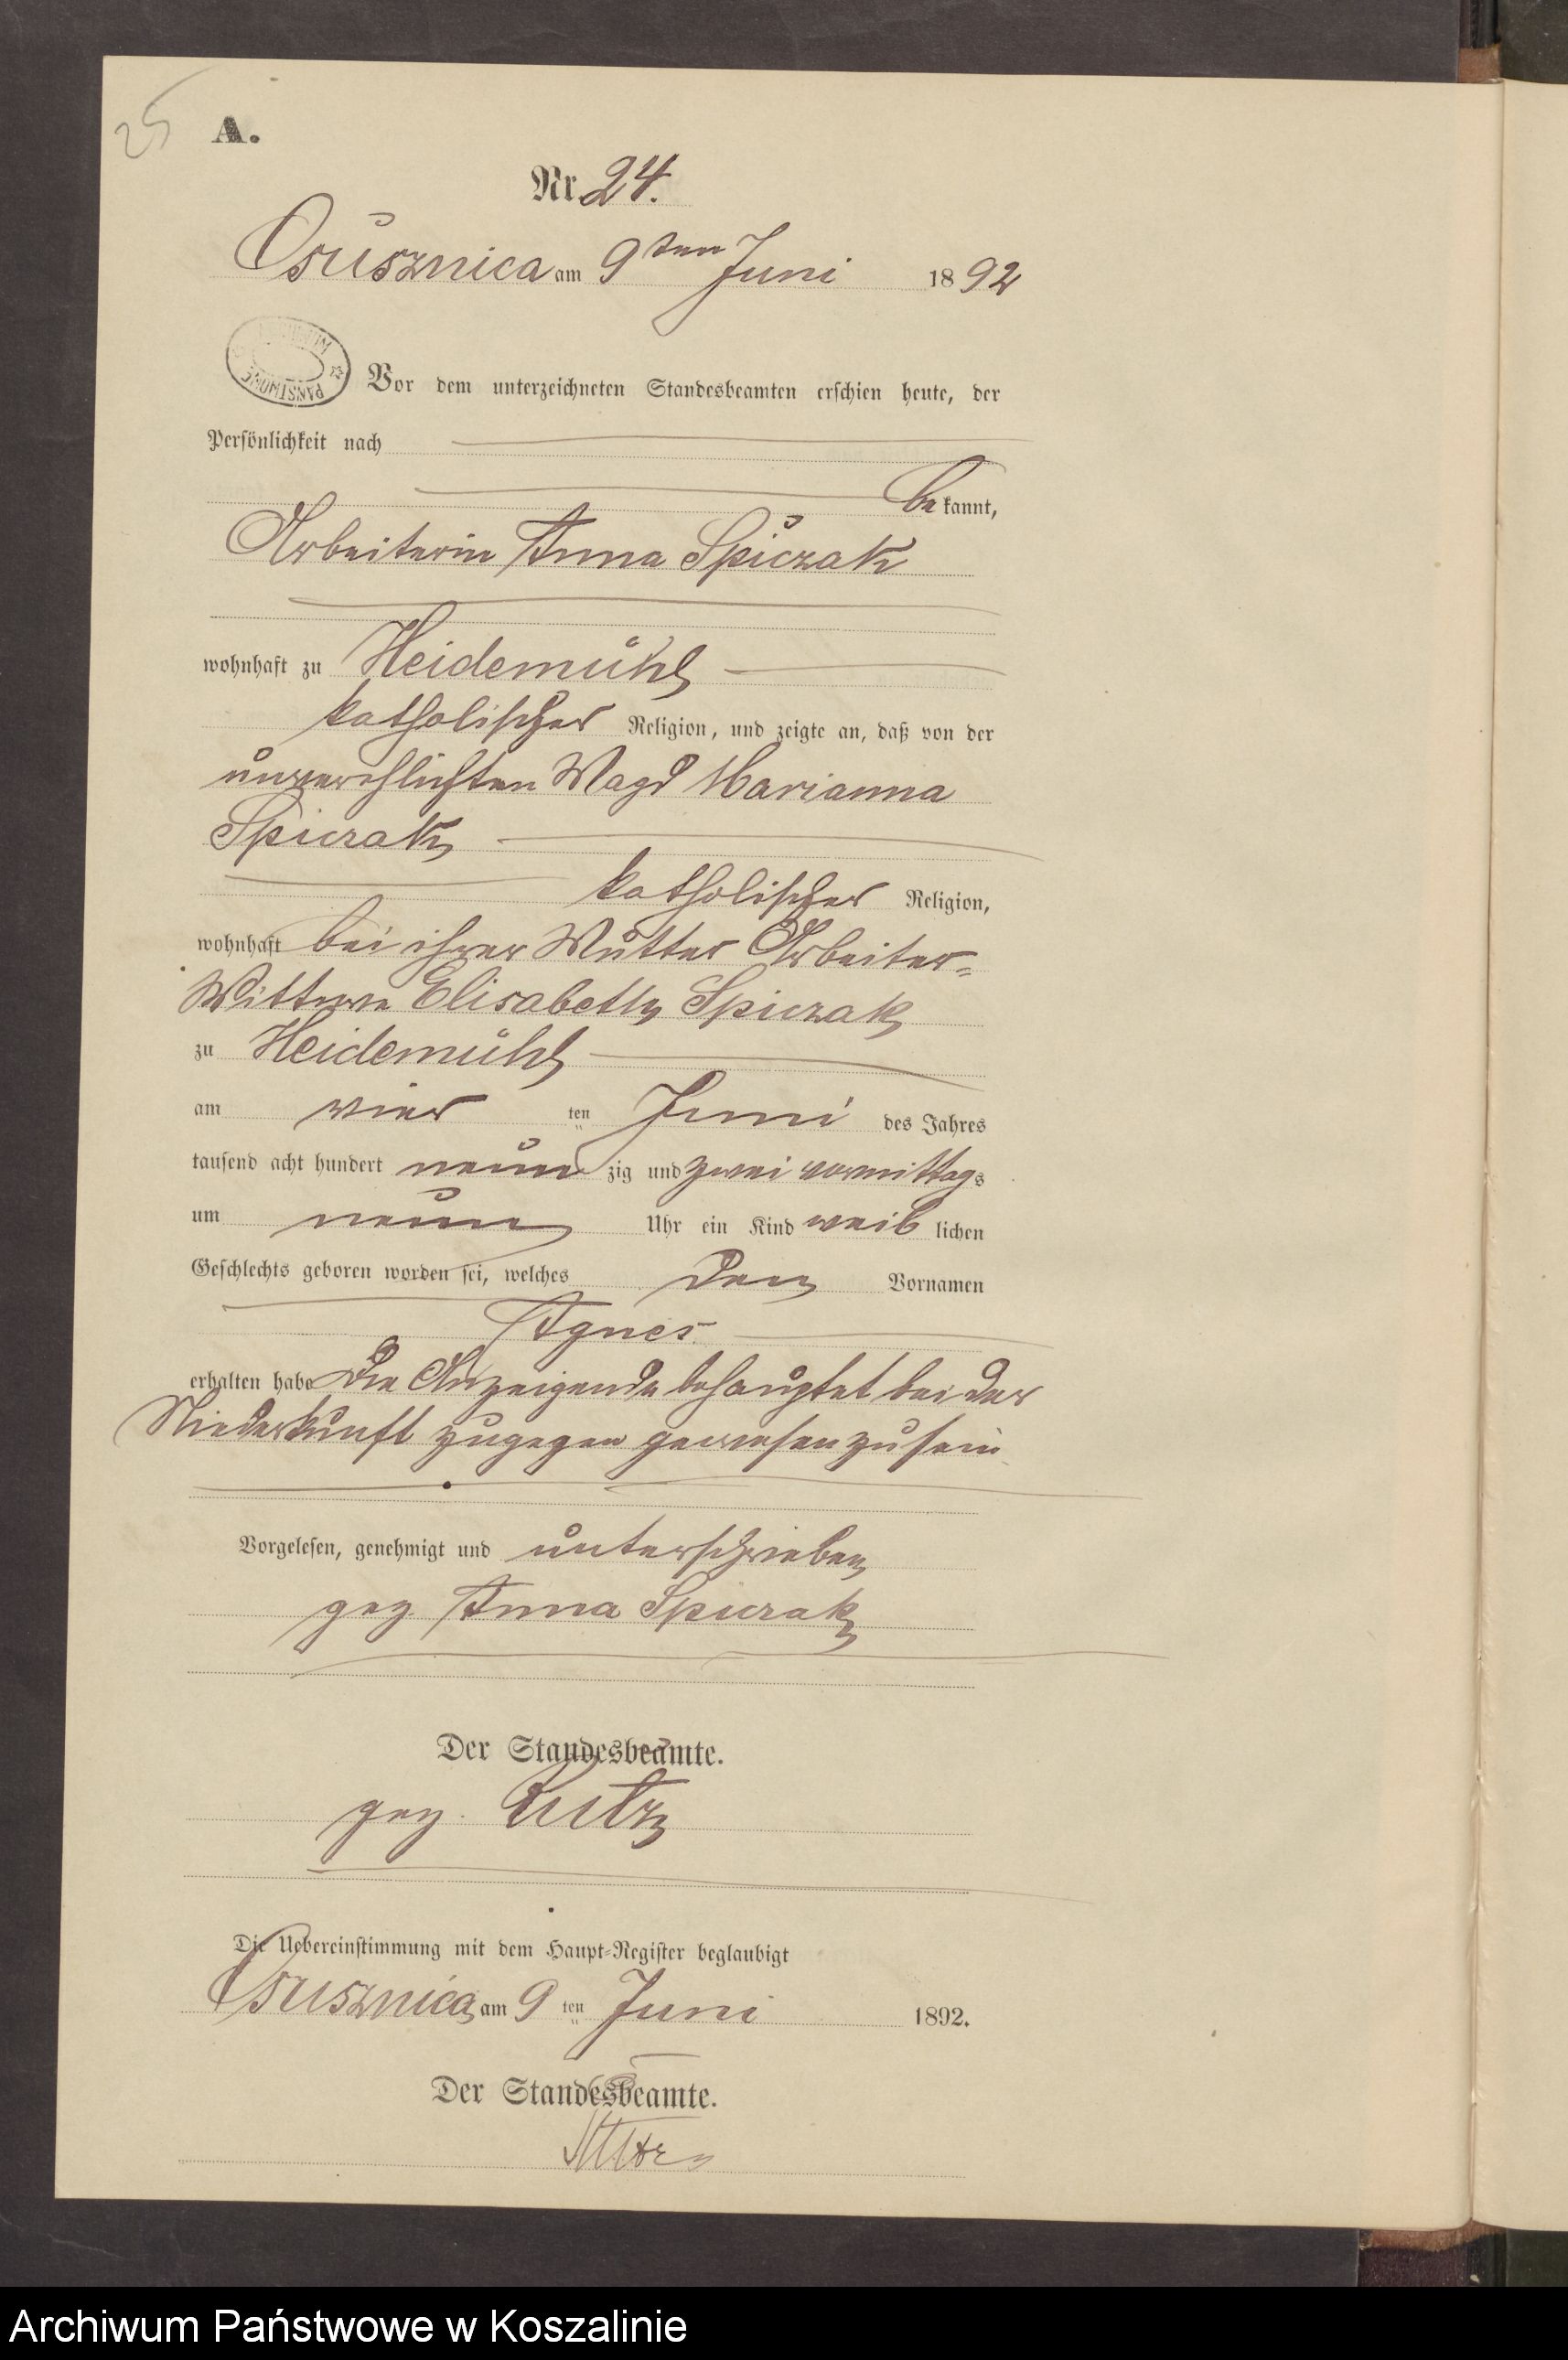 25
A.
Nr 24.
Osusznica am 9ten Juni 1892
PAŃSTWOWE
Vor dem unterzeichneten Standesbeamten erschien heute, der
Persönlichkeit nach
bekannt,
Arbeiterin Anna Spiczak
wohnhaft zu Heidemühl
katholischer Religion, und zeigte an, daß von der
unverehlichten Magd Marianna
Spiczak
katholischer Religion,
wohnhaft bei ihrer Mutter Arbeiter-
Wittwe Elisabeth Spiczak
zu Heidemühl
am vier ten Juni des Jahres
tausend acht hundert neun zig und zwei vormittags
um neun Uhr ein Kind weib lichen
Geschlechts geboren worden sei, welches den Vornamen
Agnes
erhalten habe Die Anzeigende behauptet bei der
Niederkunft zugegen gewesen zu sein
Vorgelesen, genehmigt und unterschrieben
gez. Anna Spiczak
Der Standesbeamte.
gez.
Die Uebereinstimmung mit dem Haupt-Register beglaubigt
Osusznica am 9 ten Juni 1892.
Der Standesbeamte.
Archiwum Państwowe w Koszalinie